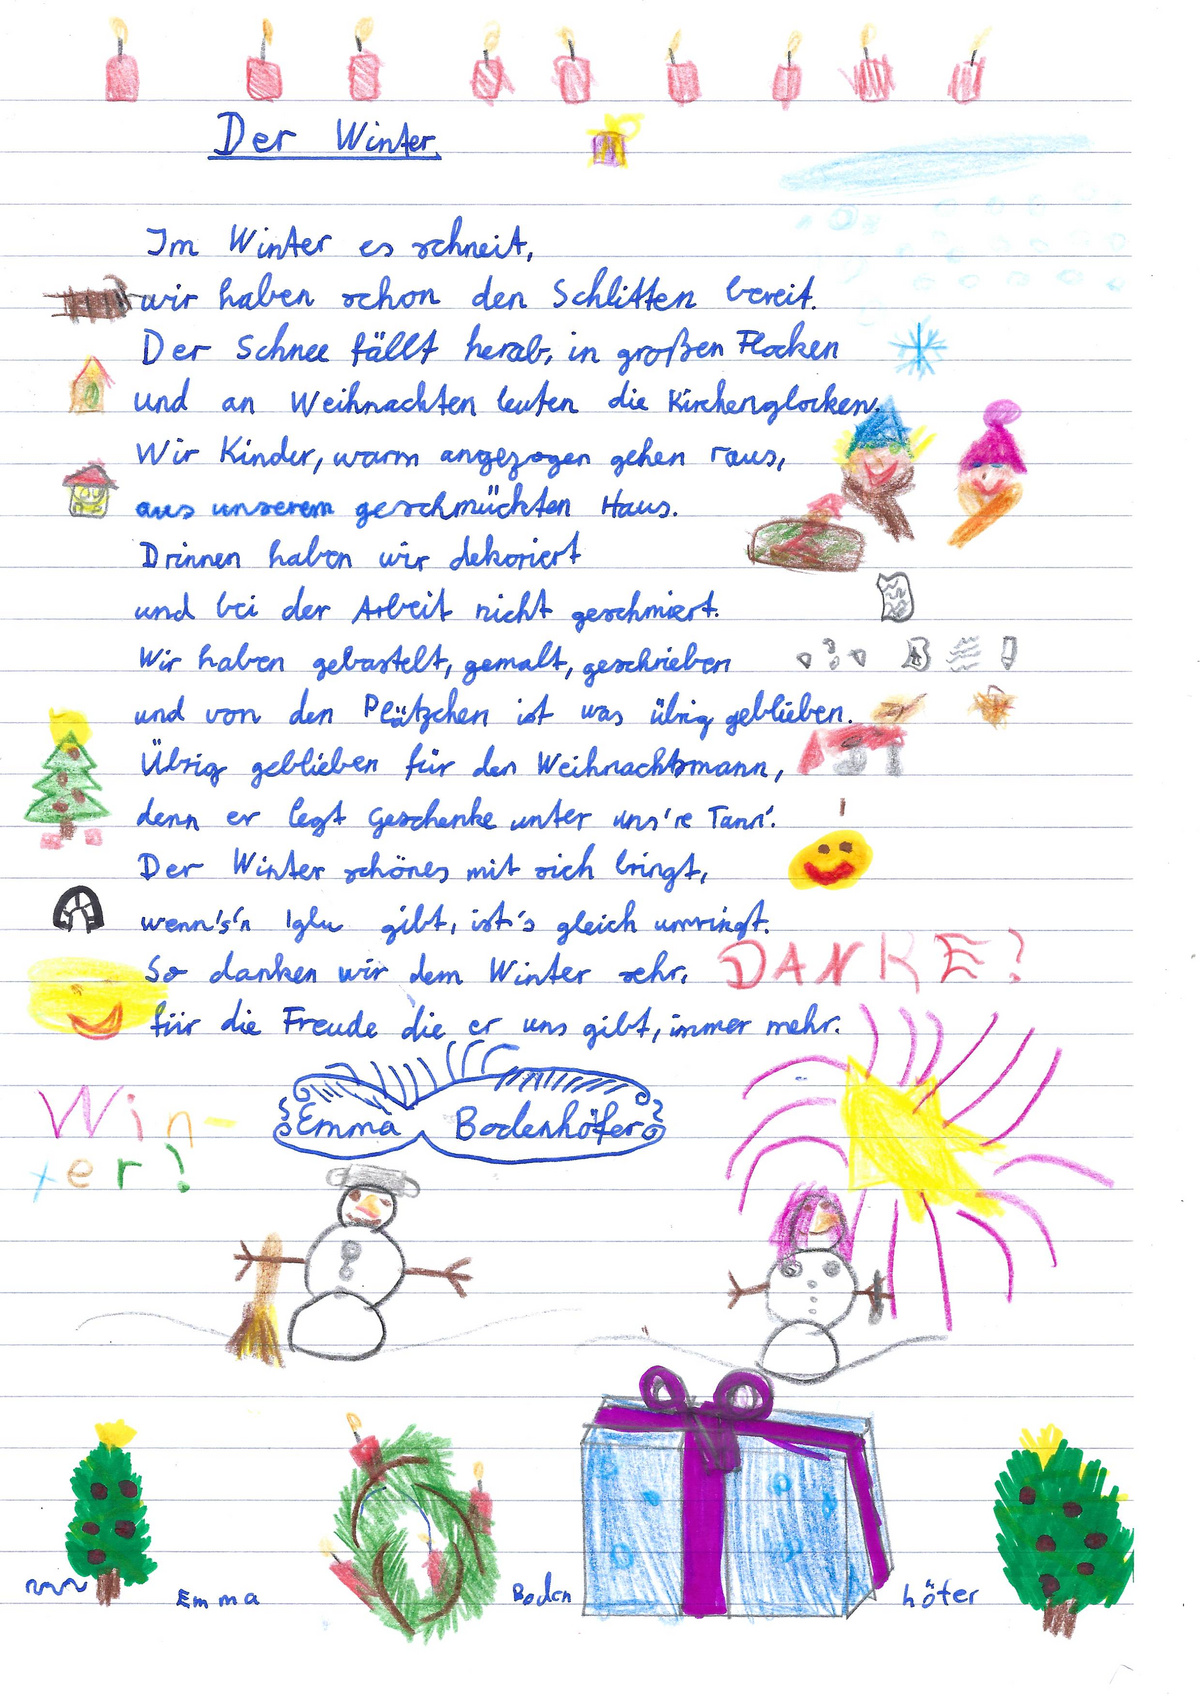 Der Winter
Im Winter es schneit,
wir haben schon den Schlitten bereit.
Der Schnee fällt herab, in großen Flocken
und an Weihnachten leuten die Kirchenglocken.
Wir Kinder, warm angezogen gehen raus,
aus unserem geschmückten Haus.
Drinnen haben wir dekoriert
und bei der Arbeit nicht geschmiert.
Wir haben gebastelt, gemalt, geschrieben
und von den Plätzchen ist was übrig geblieben.
Übrig geblieben für den Weihnachtsmann,
denn er legt Geschenke unter uns're Tann'.
Der Winter schönes mit sich bringt,
wenn's'n Iglu gibt, ist's gleich umringt.
So danken wir dem Winter sehr,
DANKE?
für die Freude die er uns gibt, immer mehr.
Win-
ter!
Emma Bodenhöfer
Emma Boden höfer